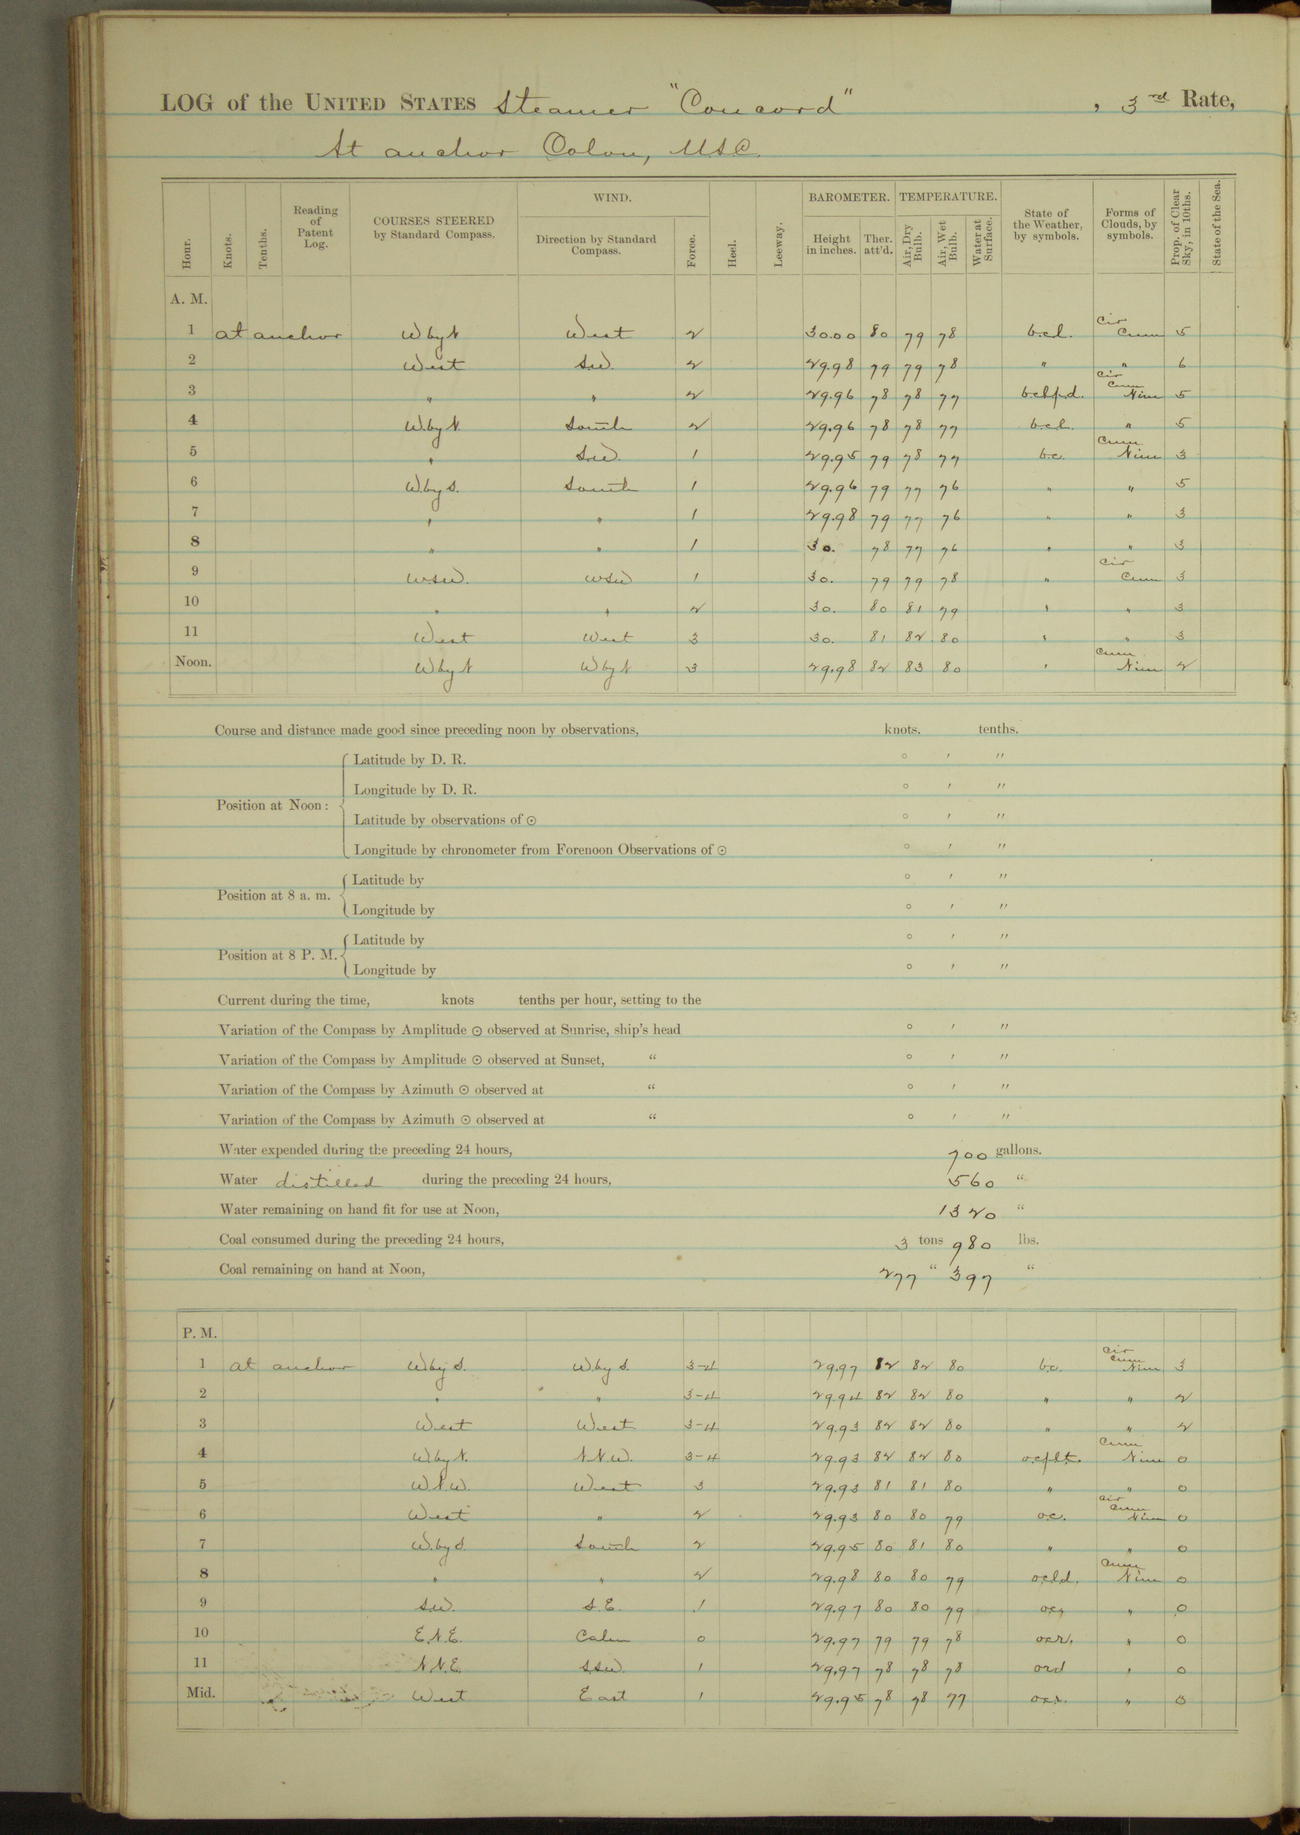 LOG of the UNITED STATES Steamer "Concord" , 3rd Rate,
At anchor Colon, U.S.C.
Hour. Knots. Tenths. Reading of Patent Log. COURSES STEERED by Standard Compass. WIND. Direction by Standard Compass. Force. Heel. Leeway. BAROMETER. Height in inches. Ther. att'd. TEMPERATURE. Air, Dry Bulb. Air, Wet Bulb. Water at Surface. State of the Weather, by symbols. Forms of Clouds, by symbols. Prop. of Clear Sky, in 10ths. State of the Sea.
A. M.
1 at anchor W by N West 2 30.00 80 79 78 b.c.l. cir cum 5
2 West S.W. 2 29.98 79 79 78 " " 6
3 " " 2 29.96 78 78 77 b.c.l.p.d. cir cum Nim 5
4 W. by N. South 2 29.96 78 78 77 b.c.l. " 5
5 " S.W. 1 29.95 79 78 77 b.c. cum Nim 3
6 W. by S. South 1 29.96 79 77 76 " " 5
7 " " 1 29.98 79 77 76 " " 3
8 " " 1 30. 78 77 76 " " 3
9 WSW. WSW 1 30. 79 79 78 " cir cum 3
10 " " 2 30. 80 81 79 " " 3
11 West West 3 30. 81 82 80 " " 3
Noon. W by N W by N 3 29.98 82 83 80 " cum Nim 2
Course and distance made good since preceding noon by observations, knots. tenths.
Position at Noon: Latitude by D. R. ° ′ ″
Longitude by D. R. ° ′ ″
Latitude by observations of ☉ ° ′ ″
Longitude by chronometer from Forenoon Observations of ☉ ° ′ ″
Position at 8 a. m. Latitude by ° ′ ″
Longitude by ° ′ ″
Position at 8 P. M. Latitude by ° ′ ″
Longitude by ° ′ ″
Current during the time, knots tenths per hour, setting to the
Variation of the Compass by Amplitude ☉ observed at Sunrise, ship's head ° ′ ″
Variation of the Compass by Amplitude ☉ observed at Sunset, " ° ′ ″
Variation of the Compass by Azimuth ☉ observed at " ° ′ ″
Variation of the Compass by Azimuth ☉ observed at " ° ′ ″
Water expended during the preceding 24 hours, 700 gallons.
Water distilled during the preceding 24 hours, 560 "
Water remaining on hand fit for use at Noon, 1320 "
Coal consumed during the preceding 24 hours, 3 tons 980 lbs.
Coal remaining on hand at Noon, 277 " 397 "
P. M.
1 at anchor W by S. W. by S. 3-4 29.97 82 82 80 b.c. cir cum Nim 3
2 " " 3-4 29.94 82 82 80 " " 2
3 West West 3-4 29.93 82 82 80 " " 2
4 W. by N. N.N.W. 3-4 29.93 82 82 80 o.c.p.l.t. cum Nim 0
5 W.N.W. West 3 29.93 81 81 80 " " 0
6 West " 2 29.93 80 80 79 o.c. cir cum Nim 0
7 W. by S. South 2 29.95 80 81 80 " " 0
8 " " 2 29.98 80 80 79 o.c.l.d. cum Nim 0
9 S.W. S.E. 1 29.97 80 80 79 " 0
10 E.N.E. Calm 0 29.97 79 79 78 o.c.r. " 0
11 N.N.E. S.S.W. 1 29.97 78 78 78 o.r.d " 0
Mid. West East 1 29.95 78 78 77 " 0